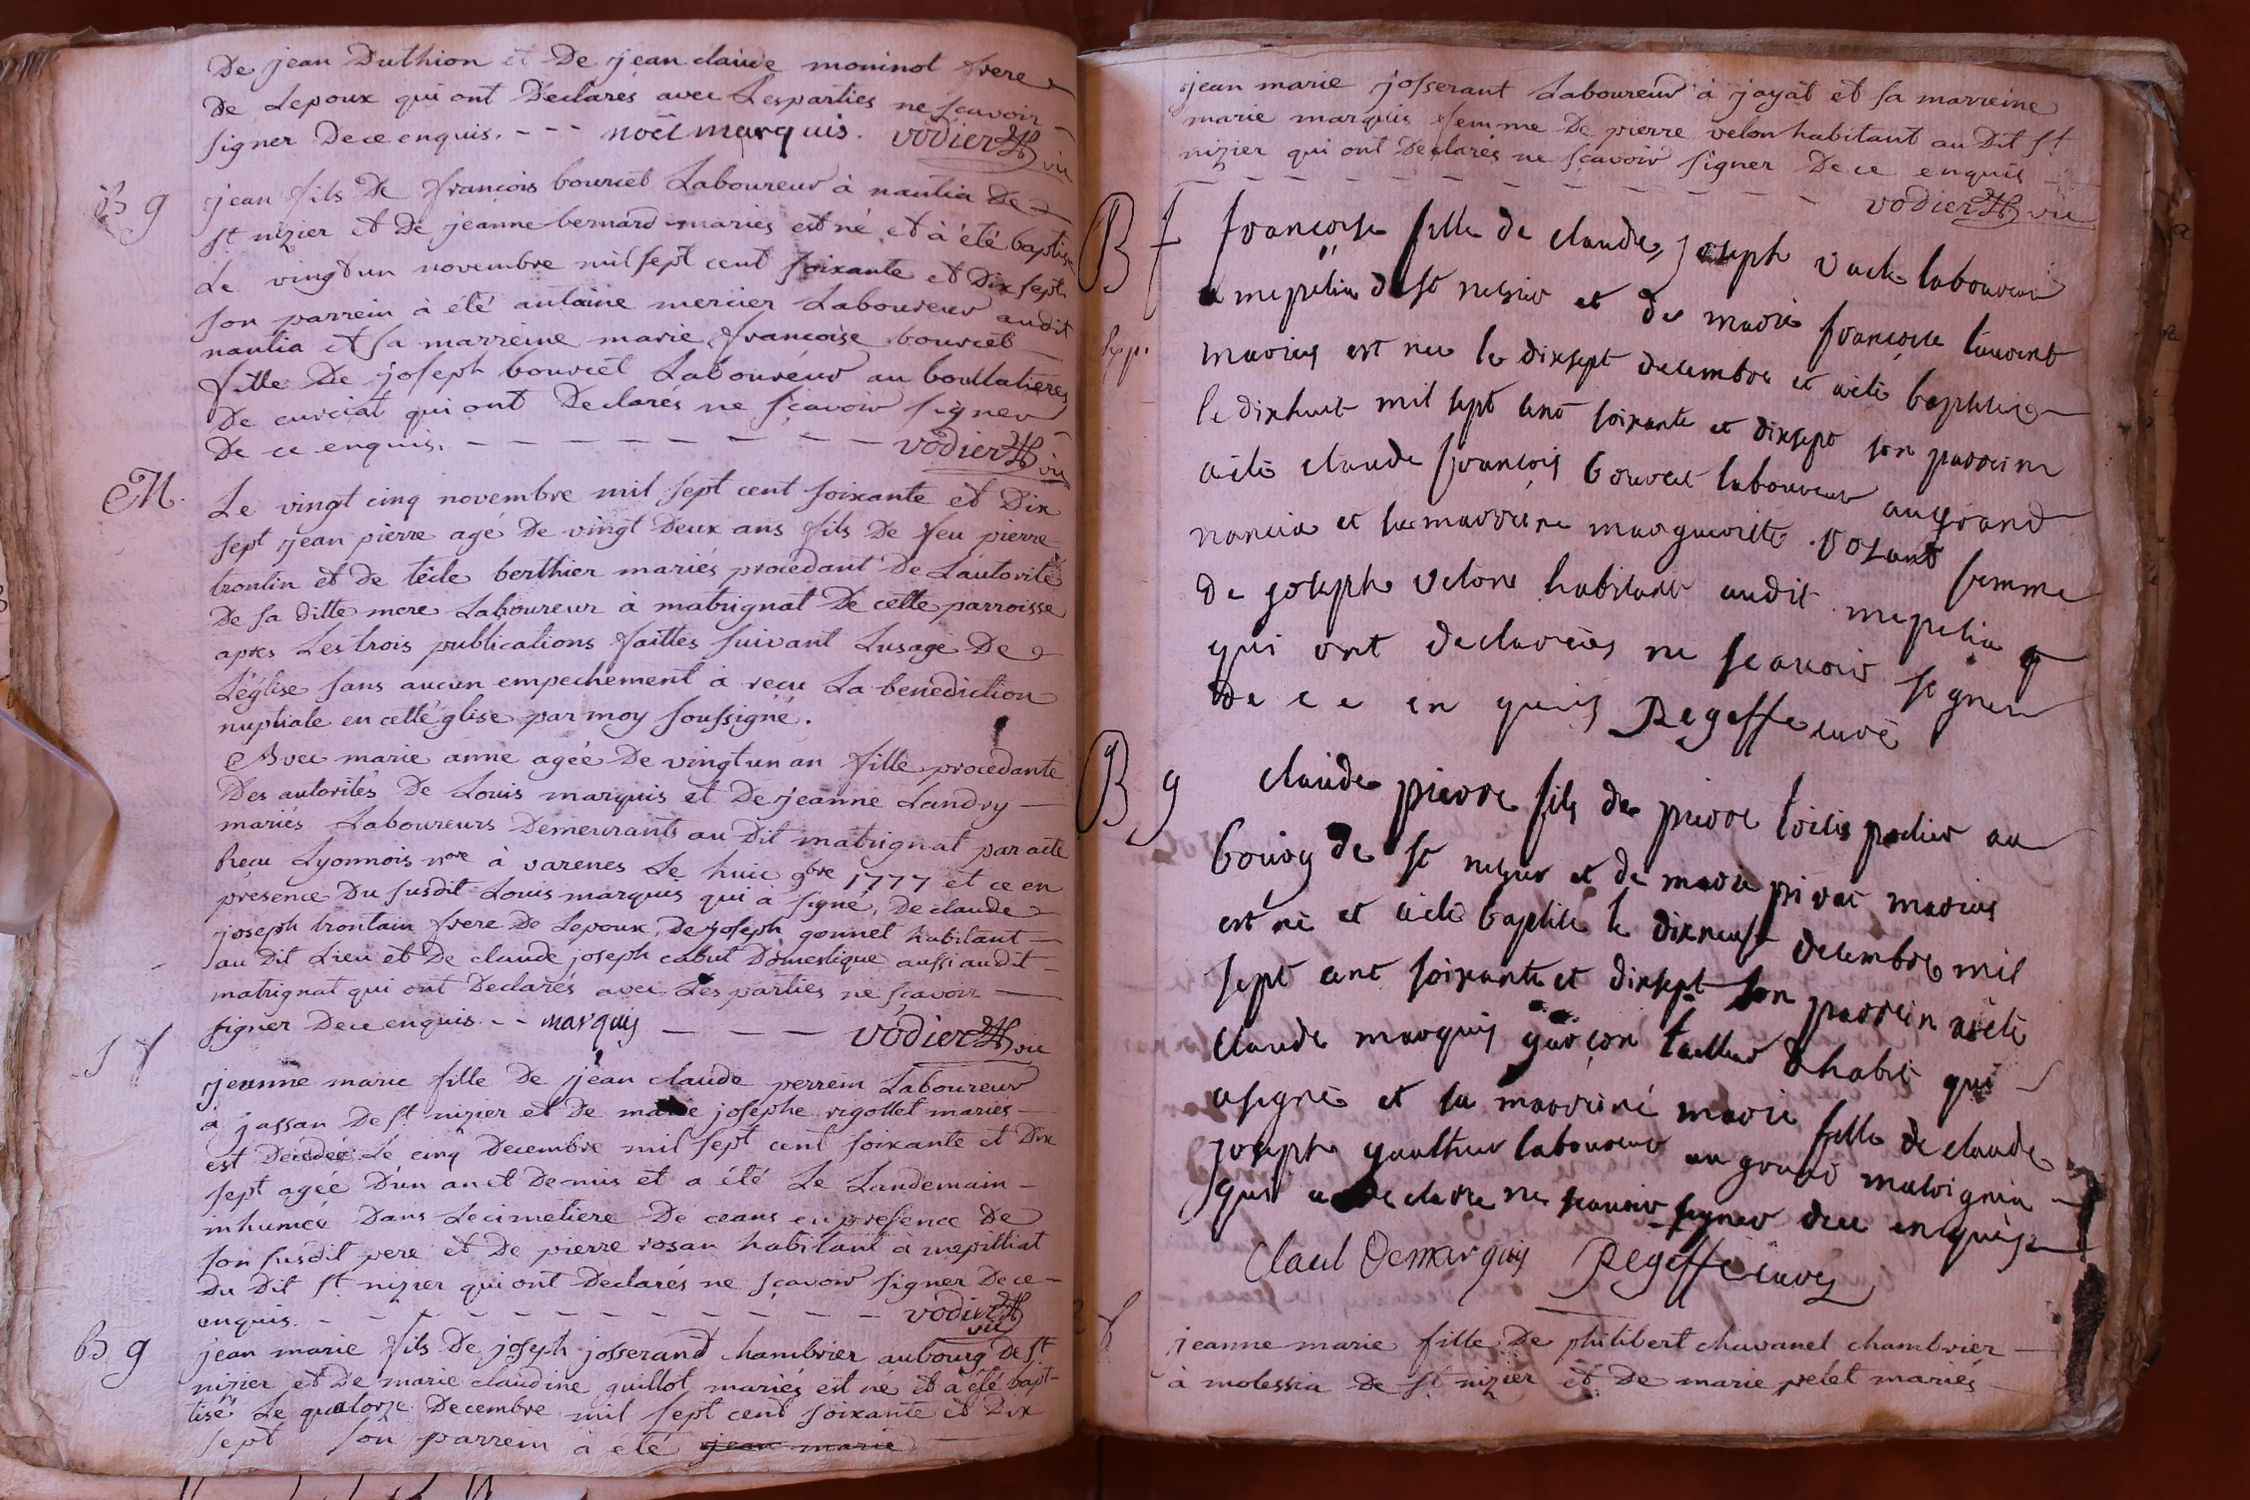 De jean Duthion et De jean claude moninot frere
De Lepoux qui ont Déclarés avec Lesparties ne sçavoir
signer Dece enquis. - - - noël marquis. vodier vic
B g
jean fils De françois bourcet Laboureur à nantia De
st nizier et De jeanne bernard mariés est né et à été baptisé
Le vingt un novembre mil sept cent soixante et Dix sept
son parrein à été antoine mercier Laboureur audit
nantia et sa marreine marie françoise bourcet
fille De joseph bourcet Laboureur au boullatieres
De curciat qui ont Declarés ne sçavoir signer
De ce enquis. - - - - - - - - vodier vic
M.
Le vingt cinq novembre mil sept cent soixante et Dix
sept jean pierre agé De vingt Deux ans fils De feu pierre
trontin et de tècle berthier mariés procedant De Lautorité
De sa ditte mere Laboureur à matrignat De cette parroisse
apres Les trois publications faittes suivant Lusage De
Léglise sans aucun empechement à reçu La benediction
nuptiale en cette église par moy soussigné.
Avec marie anne agée De vingt un an fille procedante
Des autorités De Louis marquis et De jeanne Landry
mariés Laboureurs Demeurants au Dit matrignat par acte
Reçu Lyonnois nore à varenes Le huic 9bre 1777 et ce en
présence Du susdit Louis marquis qui à signé, De claude
joseph trontain frere De Lepoux, De joseph gonnet habitant
au Dit Lieu et De claude joseph cabut Domestique aussi audit
matrignat qui ont Declarés avec Les parties ne sçavoir
signer Dece enquis - - marquis - - - vodier vic
S f
jeanne marie fille De jean claude perrein Laboureur
à jassan De st nizier et De marie josephe rigollet mariés
est Décédée Le cinq Decembre mil sept cent soixante et Dix
sept agée D'un an et Demis et a été Le Landemain
inhumée Dans Lecimetiere De ceans en presence De
son susdit pere et De pierre rosan habitant a mepilliat
Du Dit st nizier qui ont Declarés ne sçavoir signer De ce
enquis. - - - - - - - - - vodier vic
B g
jean marie fils De joseph josserand chambrier aubourg De st
nizier et De marie claudine guillot mariés est né et à été bapt-
tisé Le quatorze Decembre mil sept cent soixante et Dix
sept son parrein à été jean marie
jean marie josserant Laboureur à jayat et sa marreine
marie marquis femme De pierre velon habitant au Dit st
nizier qui ont Declarés ne sçavoir signer De ce enquis
- - - - - - - - - - - vodier vic
B f
francoise fille de claude joseph vuck laboureur
a mepelia de st nesier et de marie francoise laurent
maries est nee le dixsept decembre et aeté baptisée
le dixhuit mil sept cent soixante et dixsept son parrein
aeté claude francois bourcet laboureur augrand
nancia et sa marreine marguerite rosant femme
de joseph velon habitant audit mepelia
qui ont declareés ne scavoir signer
de c e en quis Regeffe curé
B g
claude pierre fils de pierre loisis potier au
bourg de st nesier et de marie privat maries
est né et aeté baptisé le dixneuf decembre mil
sept cent soixante et dixsept son parrein aeté
claude marquis garçon tailleur dhabit qui
asigné et sa marreine marie fille de claude
joseph gauthier laboureur au grand matrignia
qui a declaree ne scavoir signer dece enquise
Claud Demarquis Regeffe curez
f
jeanne marie fille De philibert chavanel chambrier
à molessia De st nizier et De marie pelet mariés